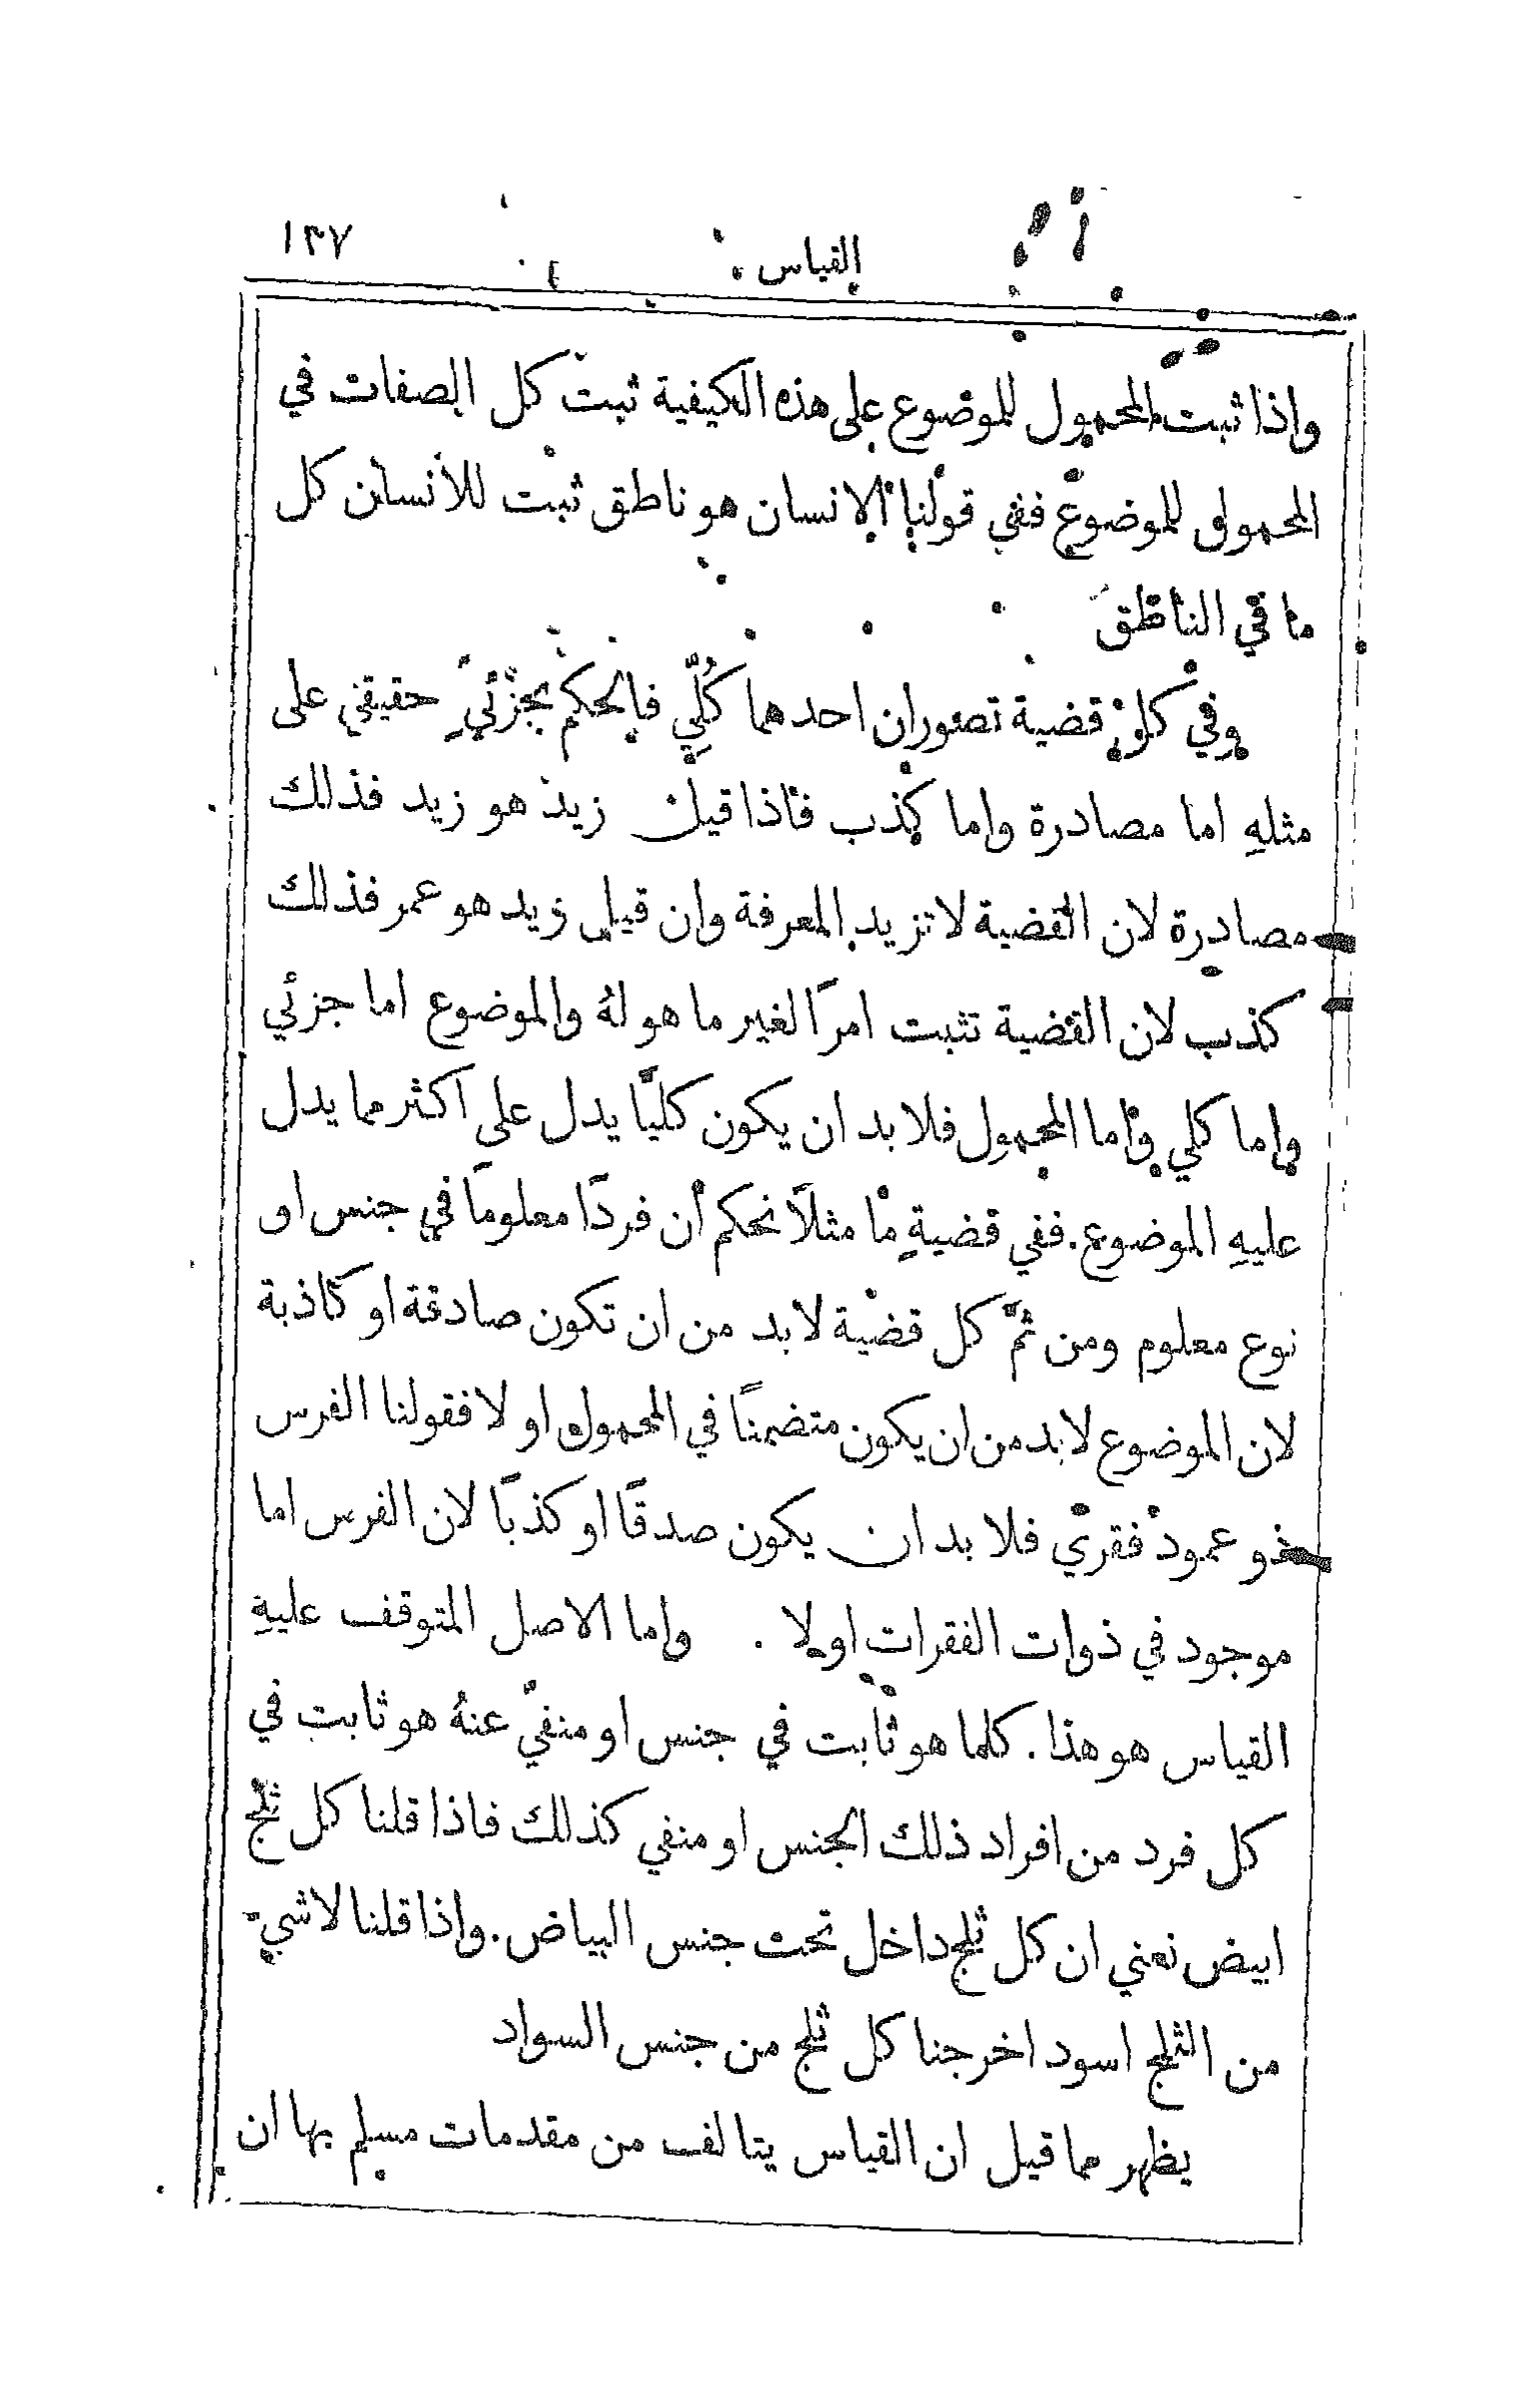 القياس ١٣٧
واذا ثبت المحمول للموضوع على هذه الكيفية ثبت كل الصفات في
المحمول للموضوع ففي قولنا الانسان هو ناطق ثبت للانسان كل
ما في الناطق
وفي كل قضية تصوران احدهما كُلِّي فالحكم بجزئيٍ حقيقي على
مثلهِ اما مصادرة واما كذب فاذا قيل زيد هو زيد فذلك
مصادرة لان القضية لا تزيد المعرفة وان قيل زيد هو عمر فذلك
كذب لان القضية تثبت امرًا لغير ما هو لهُ والموضوع اما جزئي
واما كلي واما المحمول فلا بد ان يكون كليًّا يدل على اكثر مما يدل
عليهِ الموضوع. ففي قضيةٍ ما مثلاً نحكم أن فردًا معلومًا في جنس او
نوع معلوم ومن ثمَّ كل قضية لا بد من ان تكون صادقة او كاذبة
لان الموضوع لا بد من ان يكون متضمنًا في المحمول او لا فقولنا الفرس
ذو عمود فقريّ فلا بد ان يكون صدقًا او كذبًا لان الفرس اما
موجود في ذوات الفقرات او لا . واما الاصل المتوقف عليهِ
القياس هو هذا . كلما هو ثابت في جنس او منفيٌ عنهُ هو ثابت في
كل فرد من افراد ذلك الجنس او منفي كذلك فاذا قلنا كل ثلج
ابيض نعني ان كل ثلج داخل تحت جنس البياض . واذا قلنا لا شيء
من الثلج اسود اخرجنا كل ثلج من جنس السواد
يظهر مما قيل ان القياس يتالف من مقدمات مسلم بها ان